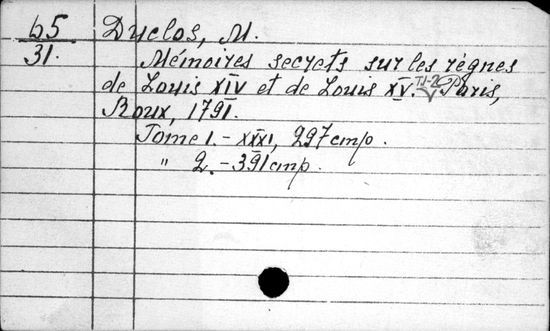 65 Duclos, M.
31. Mémoires secrets sur les règnes
de Louis XIV et de Louis XV. T.1-2 Paris,
Roux, 1791.
Tome 1. - XXXI, 297 стр.
" 2. - 391 стр.